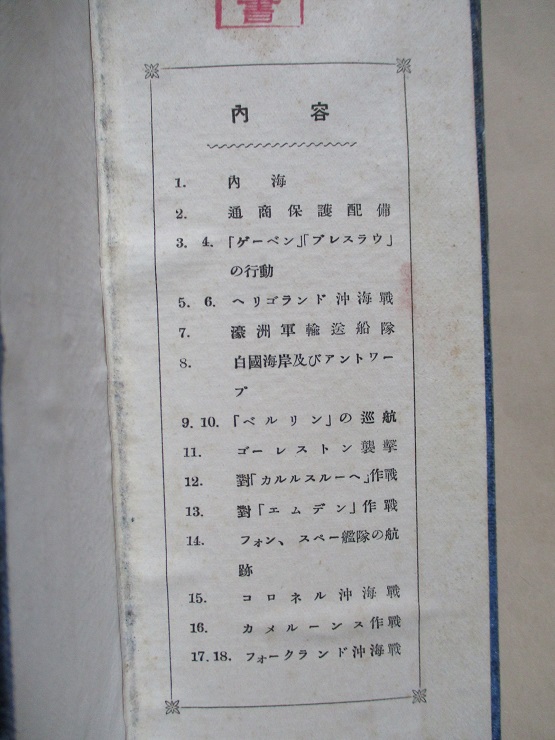 書
內容
1. 內海
2. 通商保護配備
3. 4. 「ゲーベン」「ブレスラウ」
の行動
5. 6. ヘリゴランド沖海戰
7. 濠洲軍輸送船隊
8. 白國海岸及びアントワー
プ
9. 10. 「ベルリン」の巡航
11. ゴーレストン襲擊
12. 對「カルルスルーヘ」作戰
13. 對「エムデン」作戰
14. フォン、スペー艦隊の航
跡
15. コロネル沖海戰
16. カメルーンス作戰
17. 18. フォークランド沖海戰